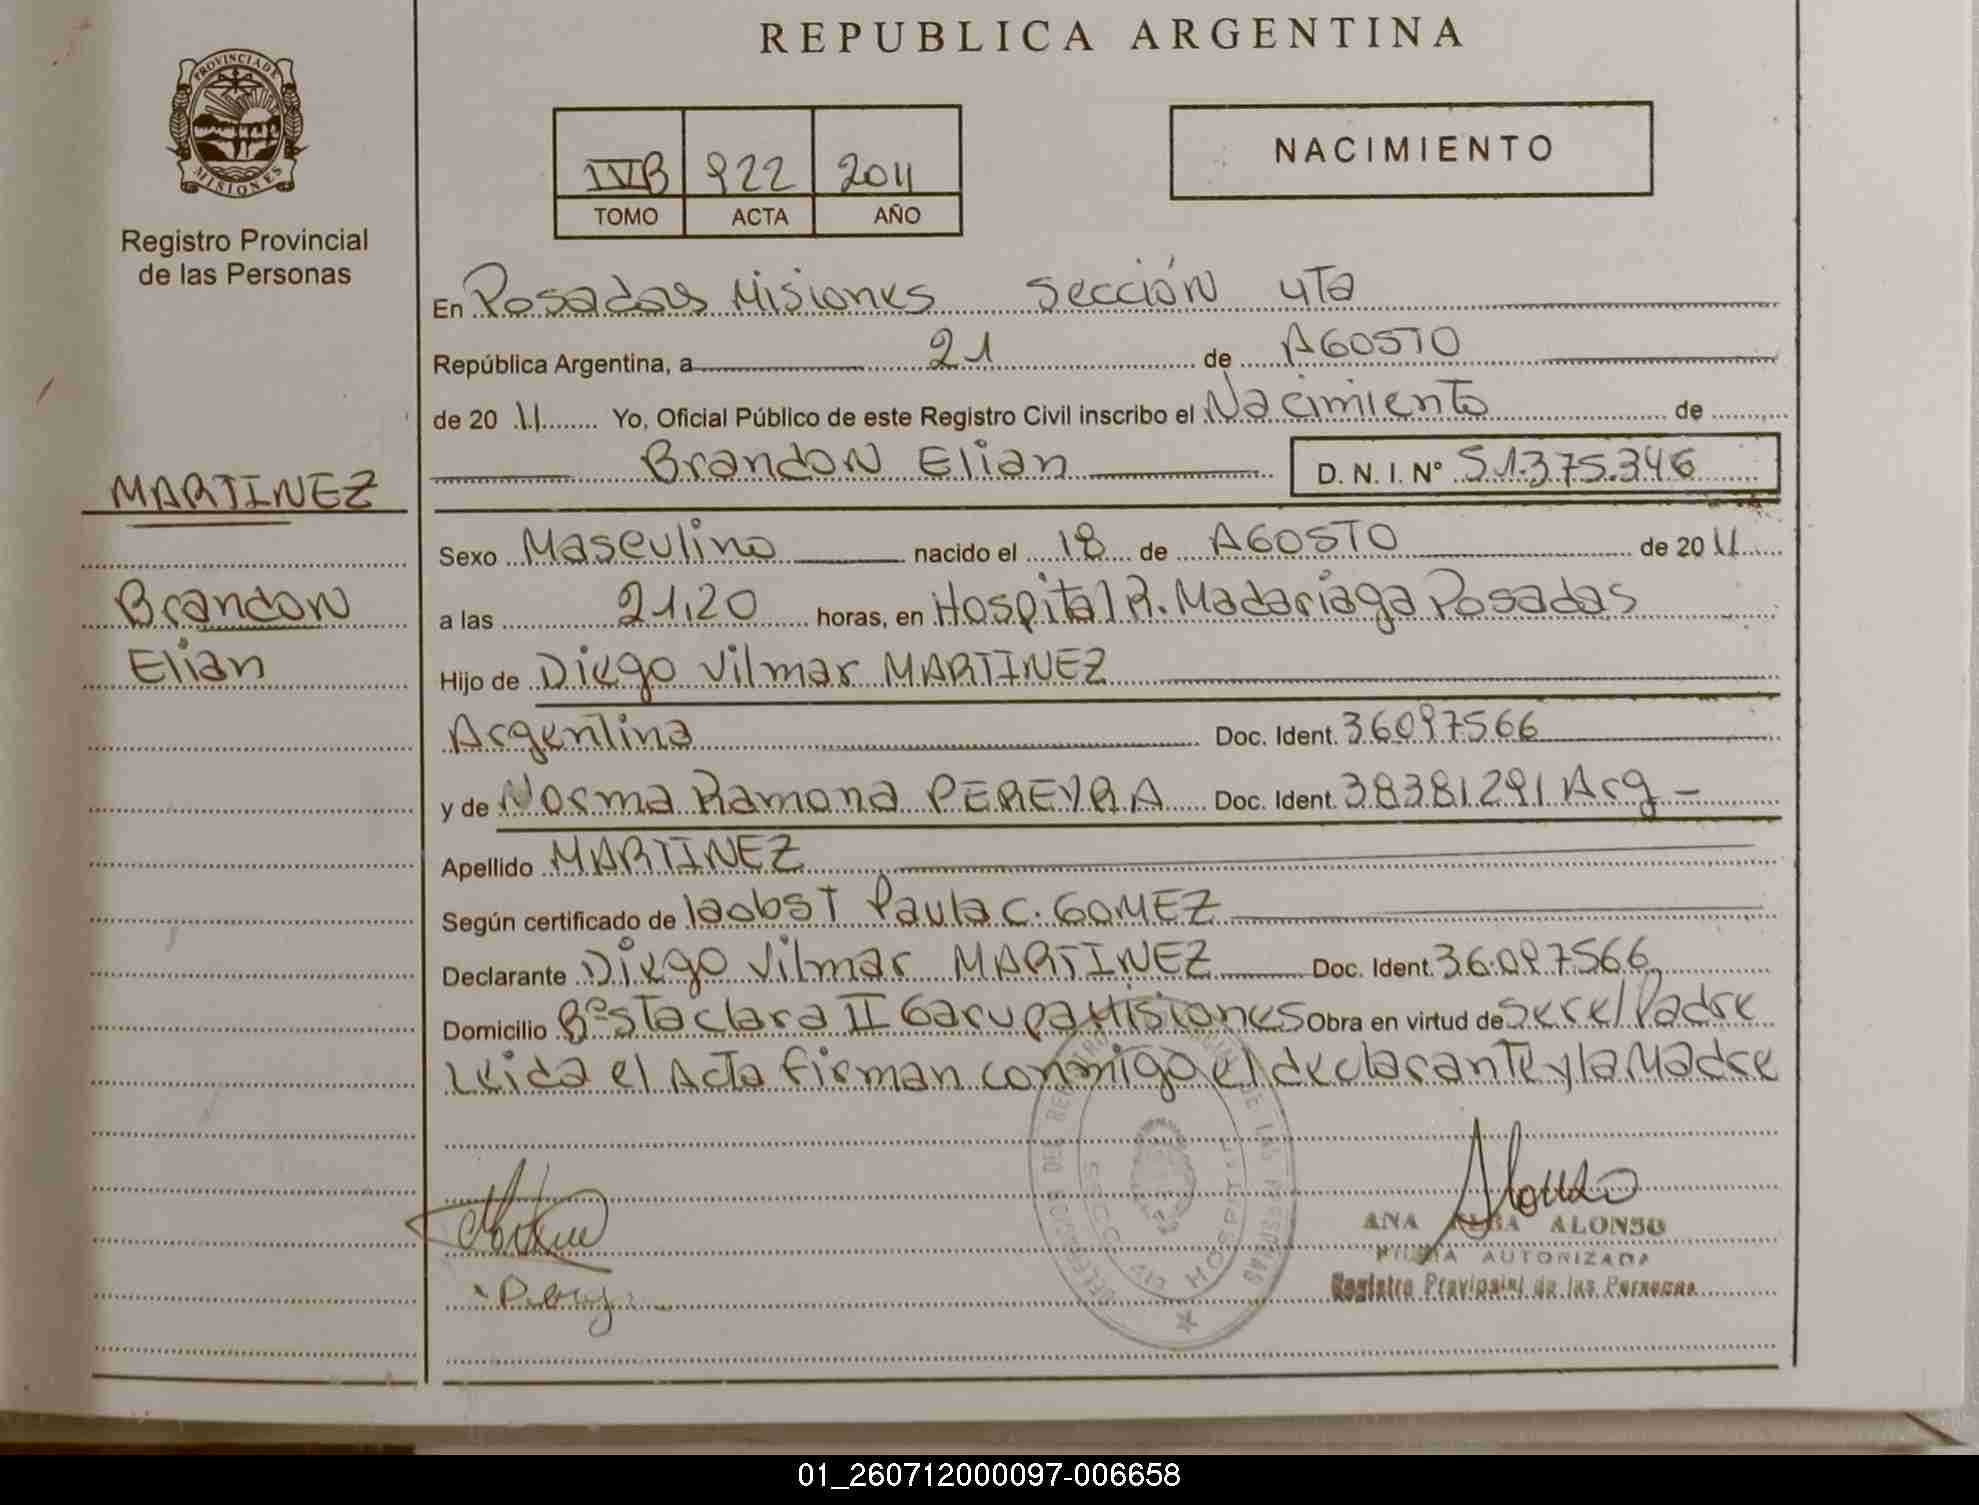 REPUBLICA ARGENTINA
PROVINCIA DE
MISIONES
Registro Provincial
de las Personas
IVB 922 2011
TOMO ACTA AÑO
NACIMIENTO
En Posadas Misiones Sección 4ta
República Argentina, a 21 de AGOSTO
de 20 11 Yo, Oficial Público de este Registro Civil inscribo el Nacimiento de
Brandon Elian D. N. I. N° 51.375.346
MARTINEZ
Brandon
Elian
Sexo Masculino nacido el 18 de AGOSTO de 20 11
a las 21,20 horas, en Hospital R. Madariaga Posadas
Hijo de Diego Vilmar MARTINEZ
Argentina Doc. Ident. 36097566
y de Norma Ramona PEREYRA Doc. Ident. 38381291 Arg -
Apellido MARTINEZ
Según certificado de laobst Paula C. GOMEZ
Declarante Diego Vilmar MARTINEZ Doc. Ident. 36097566
Domicilio B° Sta clara II Garupa Misiones Obra en virtud de ser el Padre
Leida el Acta firman conmigo el declarante y la Madre
DE LAS PERSONAS
HOSPITAL
Alonso
ANA ALBA ALONSO
FIRMA AUTORIZADA
Registro Provincial de las Personas
01_260712000097-006658